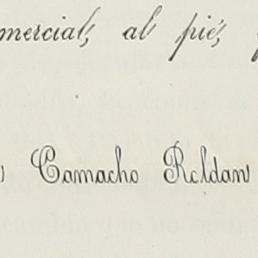 mercial, al pié,
s Camacho Roldan